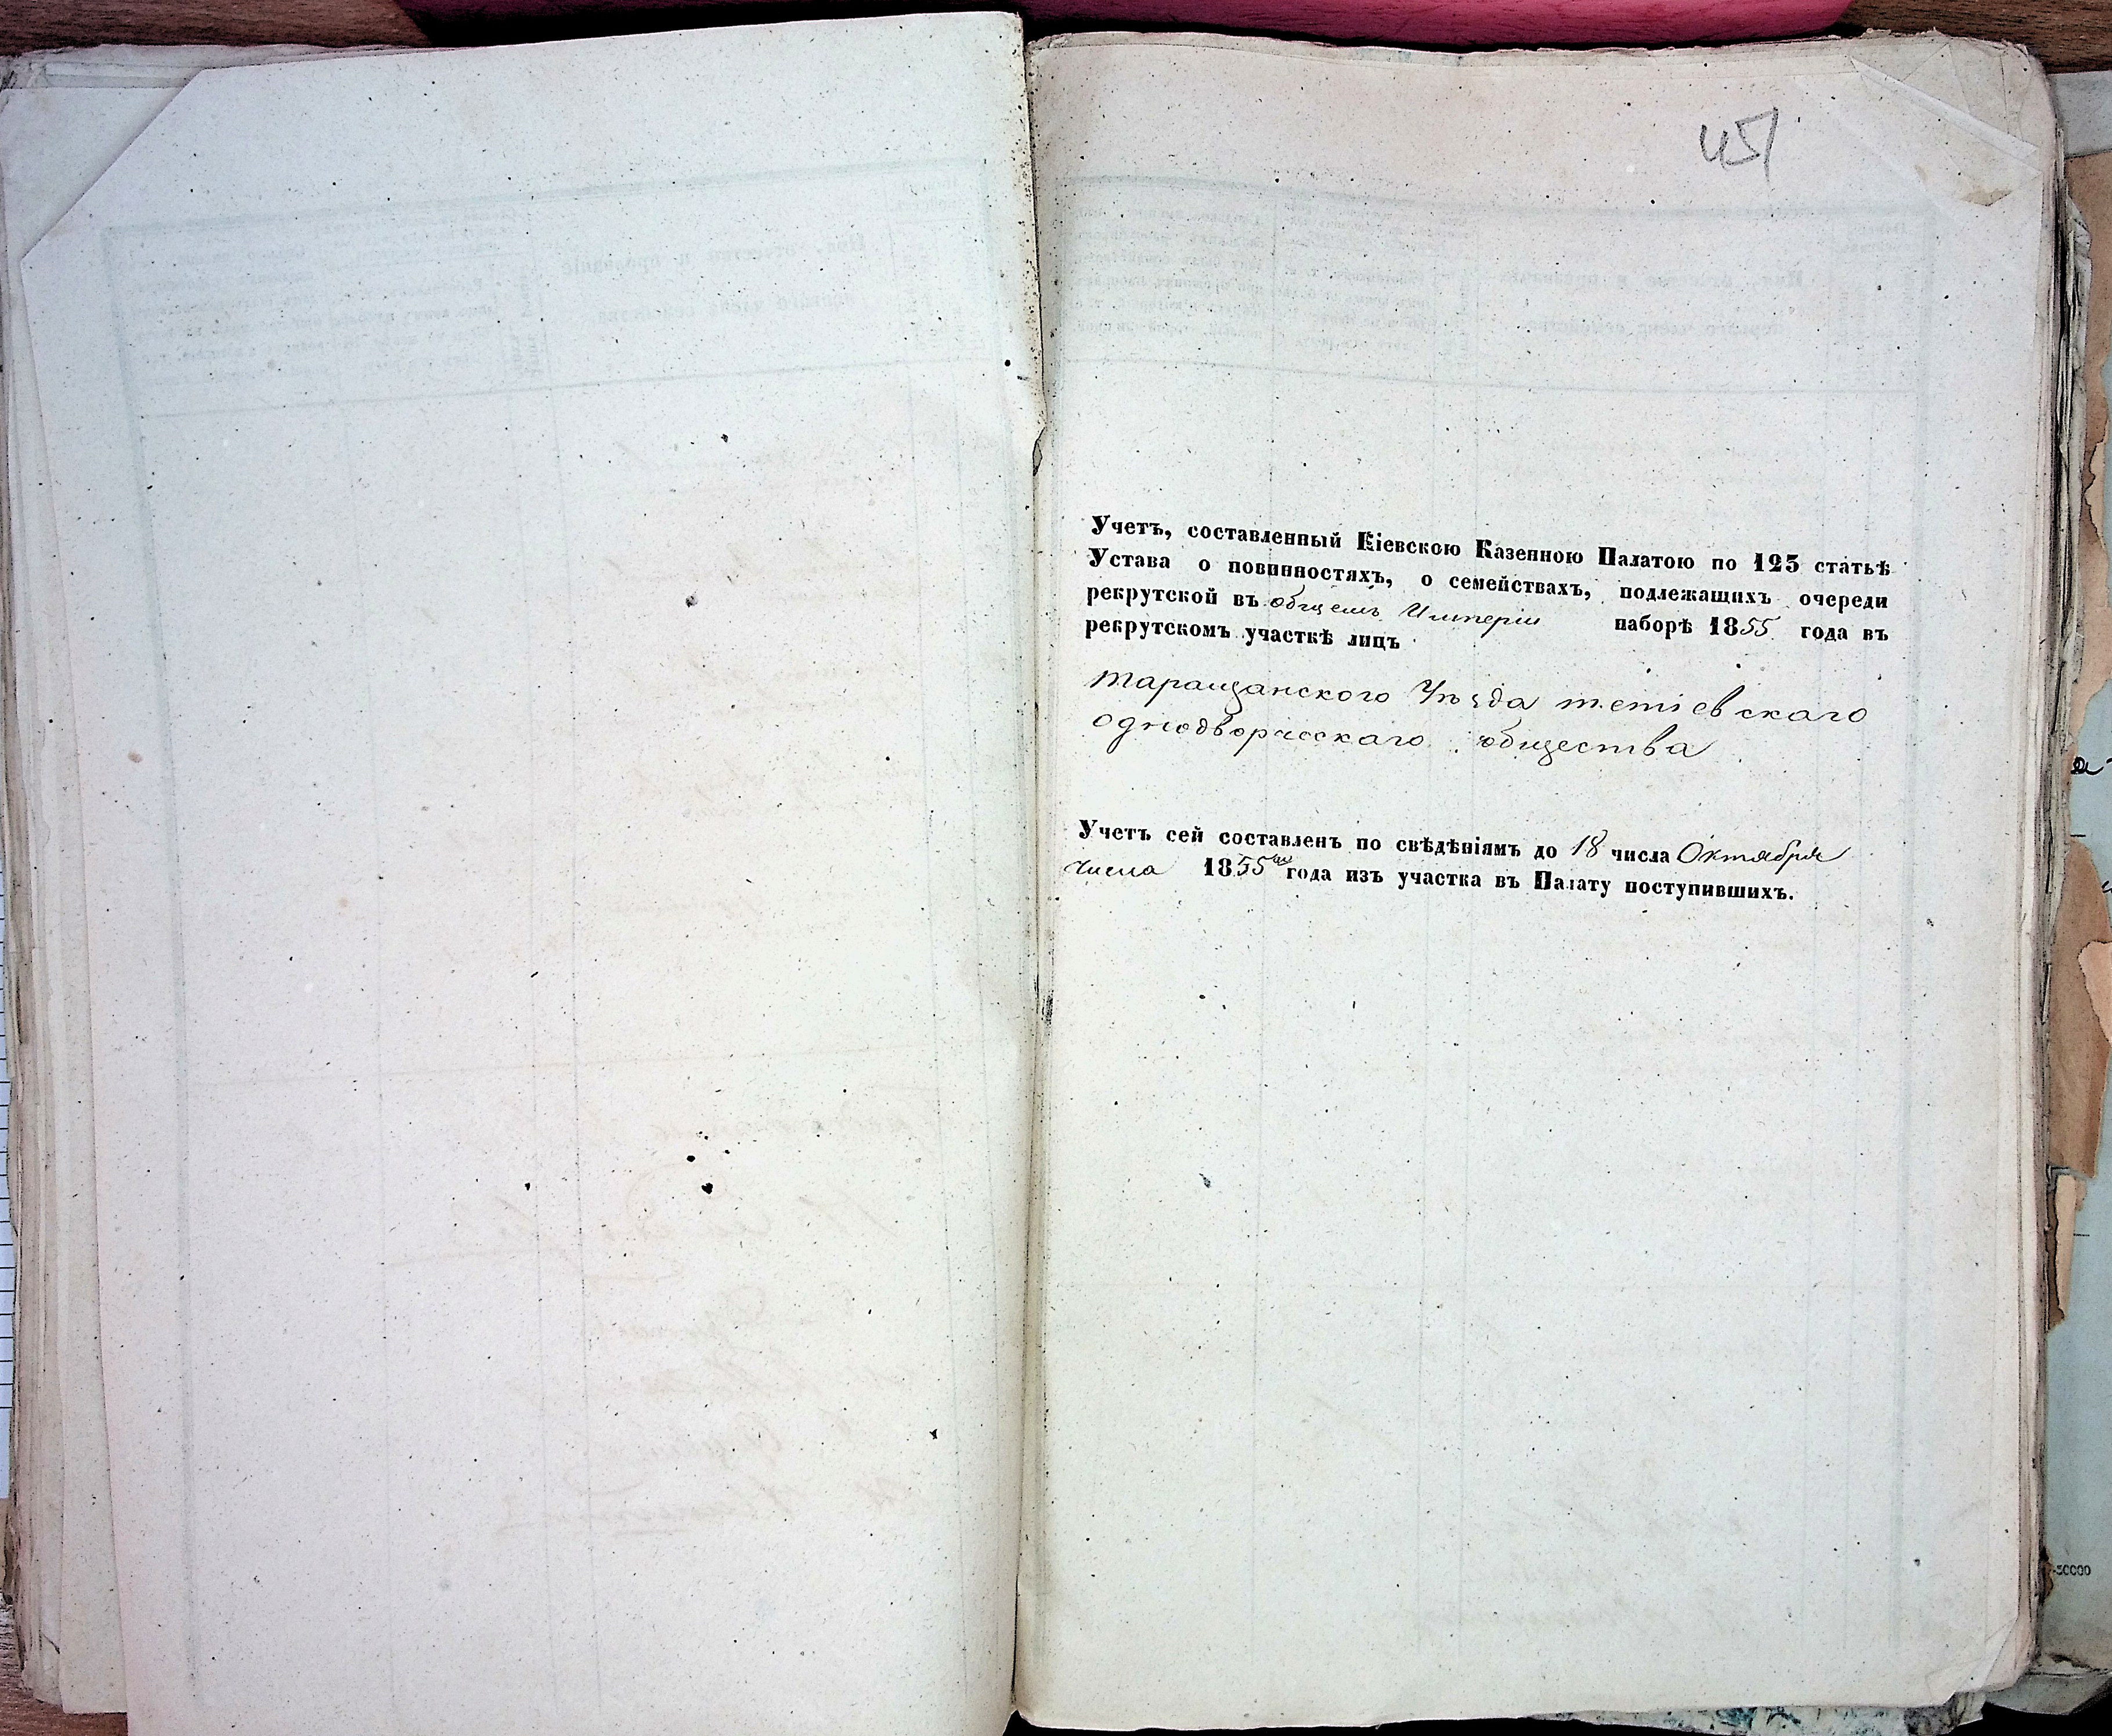 451
Учетъ, составленный Кіевскою Казенною Палатою по 123 статьѣ
Устава о повинностяхъ, о семействахъ, подлежащихъ очереди
рекрутской въ общемъ Имперіи наборѣ 1855 года въ
рекрутскомъ участкѣ лицъ
таращанского Уѣзда тетіевскаго
однодворческаго общества
Учетъ сей составленъ по свѣдѣніямъ до 18 числа Октября
числа 1855го года изъ участка въ Палату поступившихъ.
50000